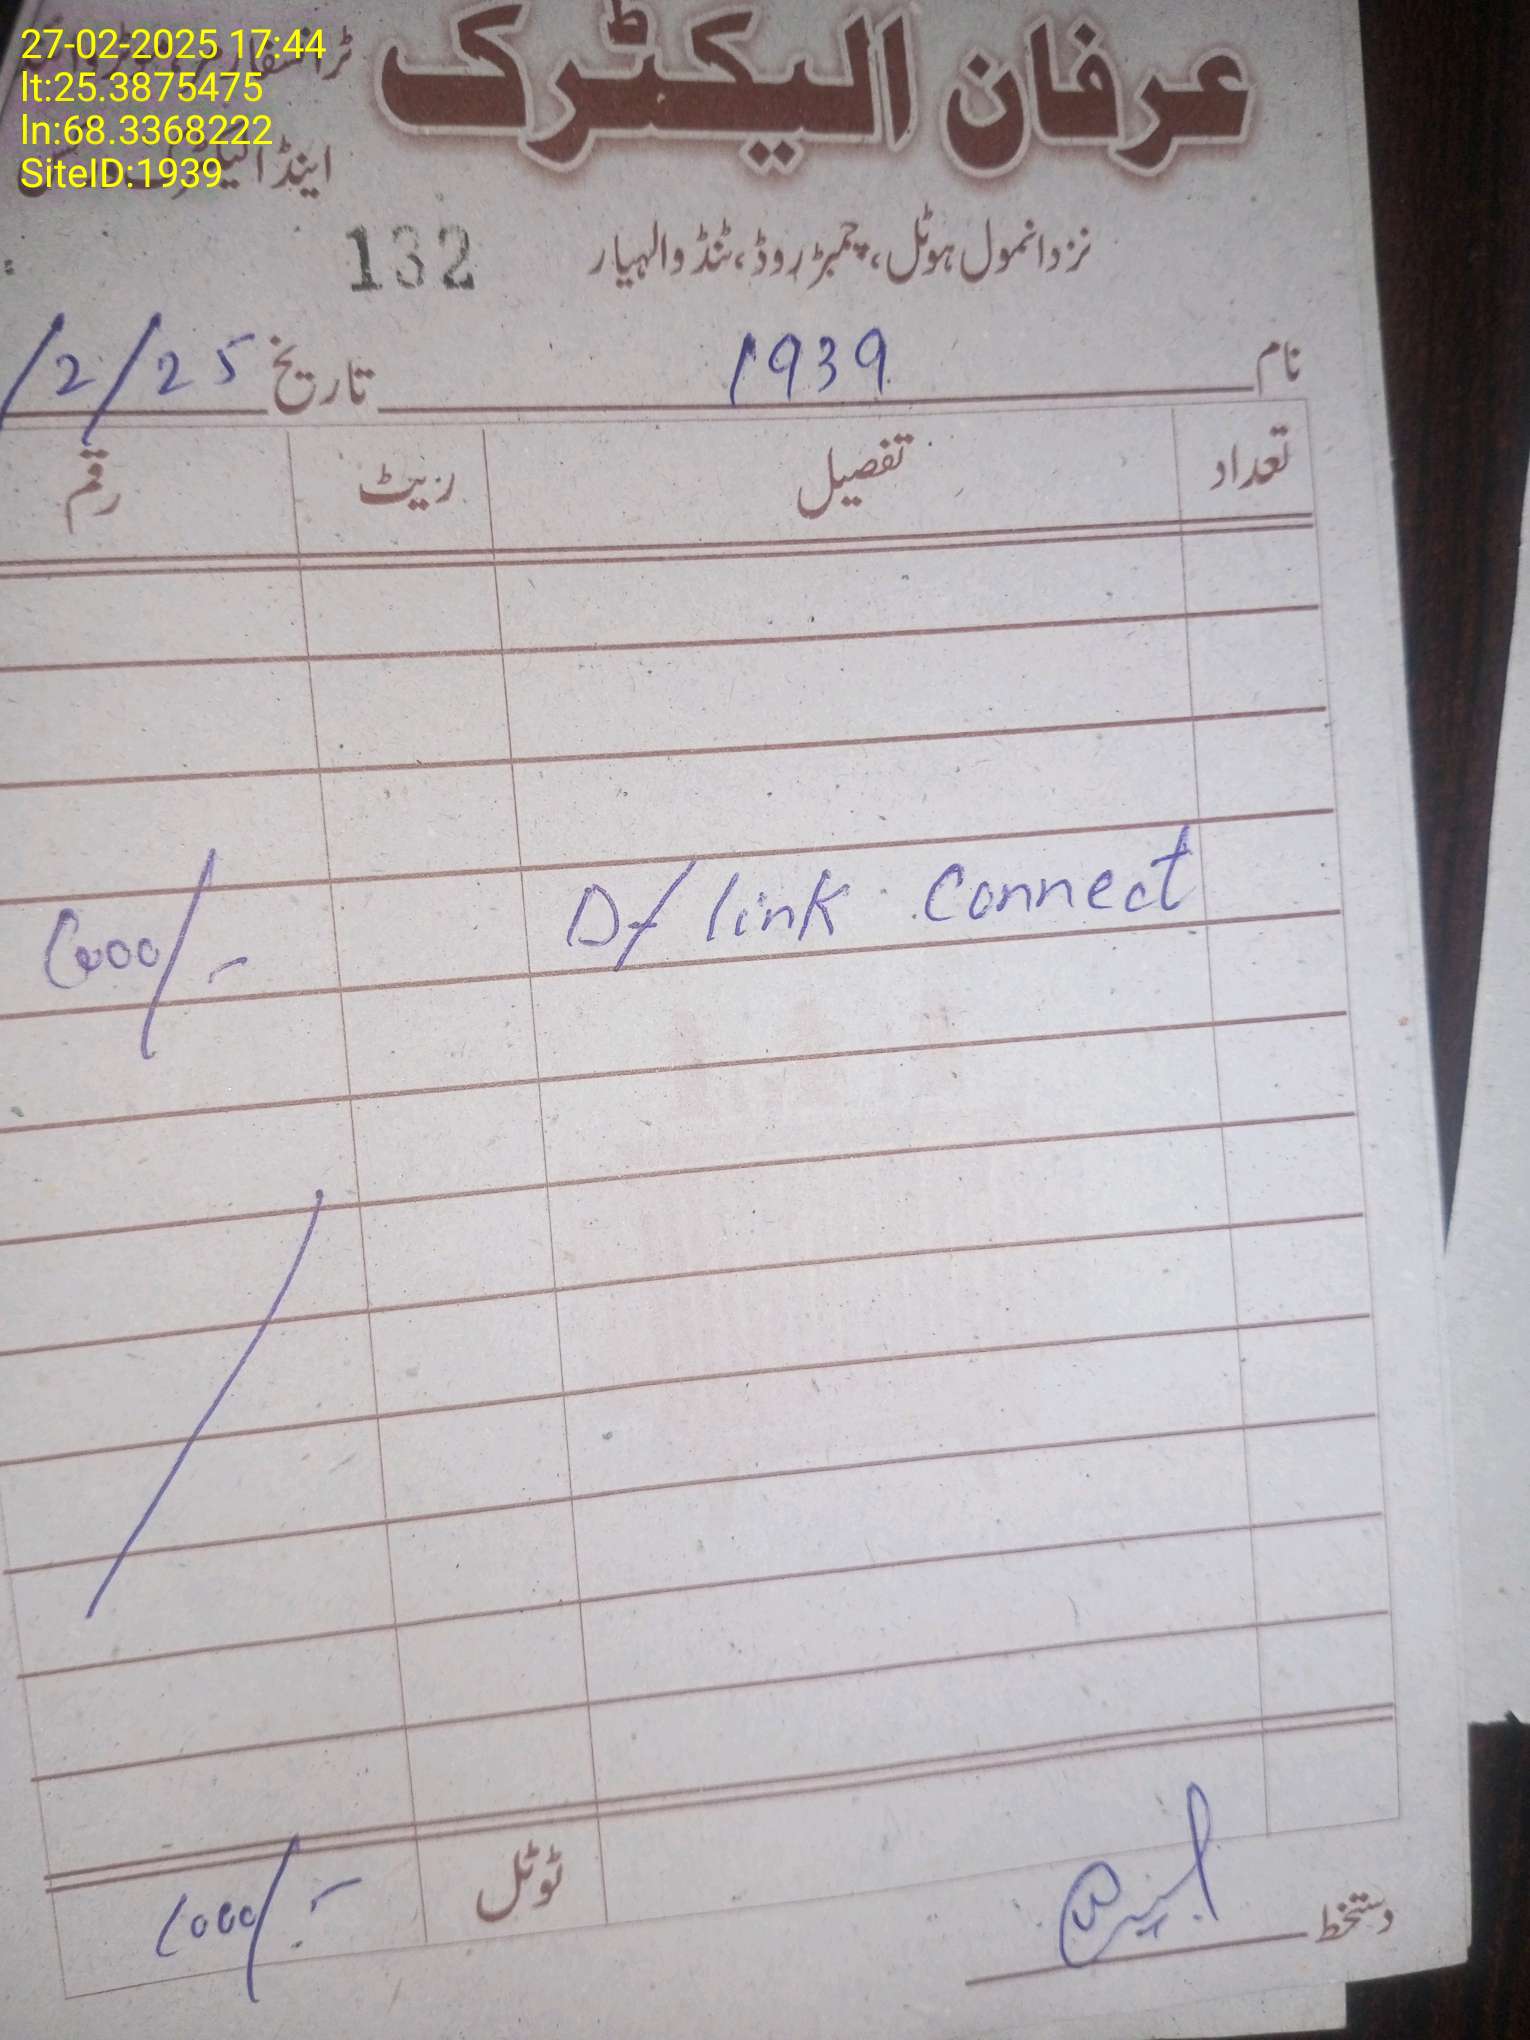 27-02-2025 17:44
lt:25.3875475
ln:68.3368222
SiteID:1939
عرفان الیکٹرک
اینڈ
نزد انمول ہوٹل، چمبڑ روڈ، ٹنڈوالہیار
132
نام 1939 تاریخ /2/25
تعداد تفصیل ریٹ رقم
D/ link connect 1000/-
ٹوٹل 1000/-
دستخط